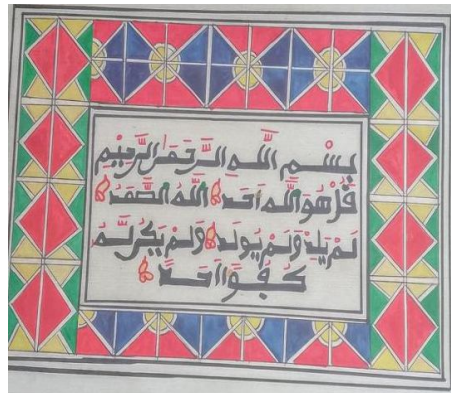 بِسْمِ اللَّهِ الرَّحْمَٰنِ الرَّحِيمِ
قُلْ هُوَ اللَّهُ أَحَدٌ اللَّهُ الصَّمَدُ
لَمْ يَلِدْ وَلَمْ يُولَدْ وَلَمْ يَكُن لَّهُ
كُفُوًا أَحَدٌ